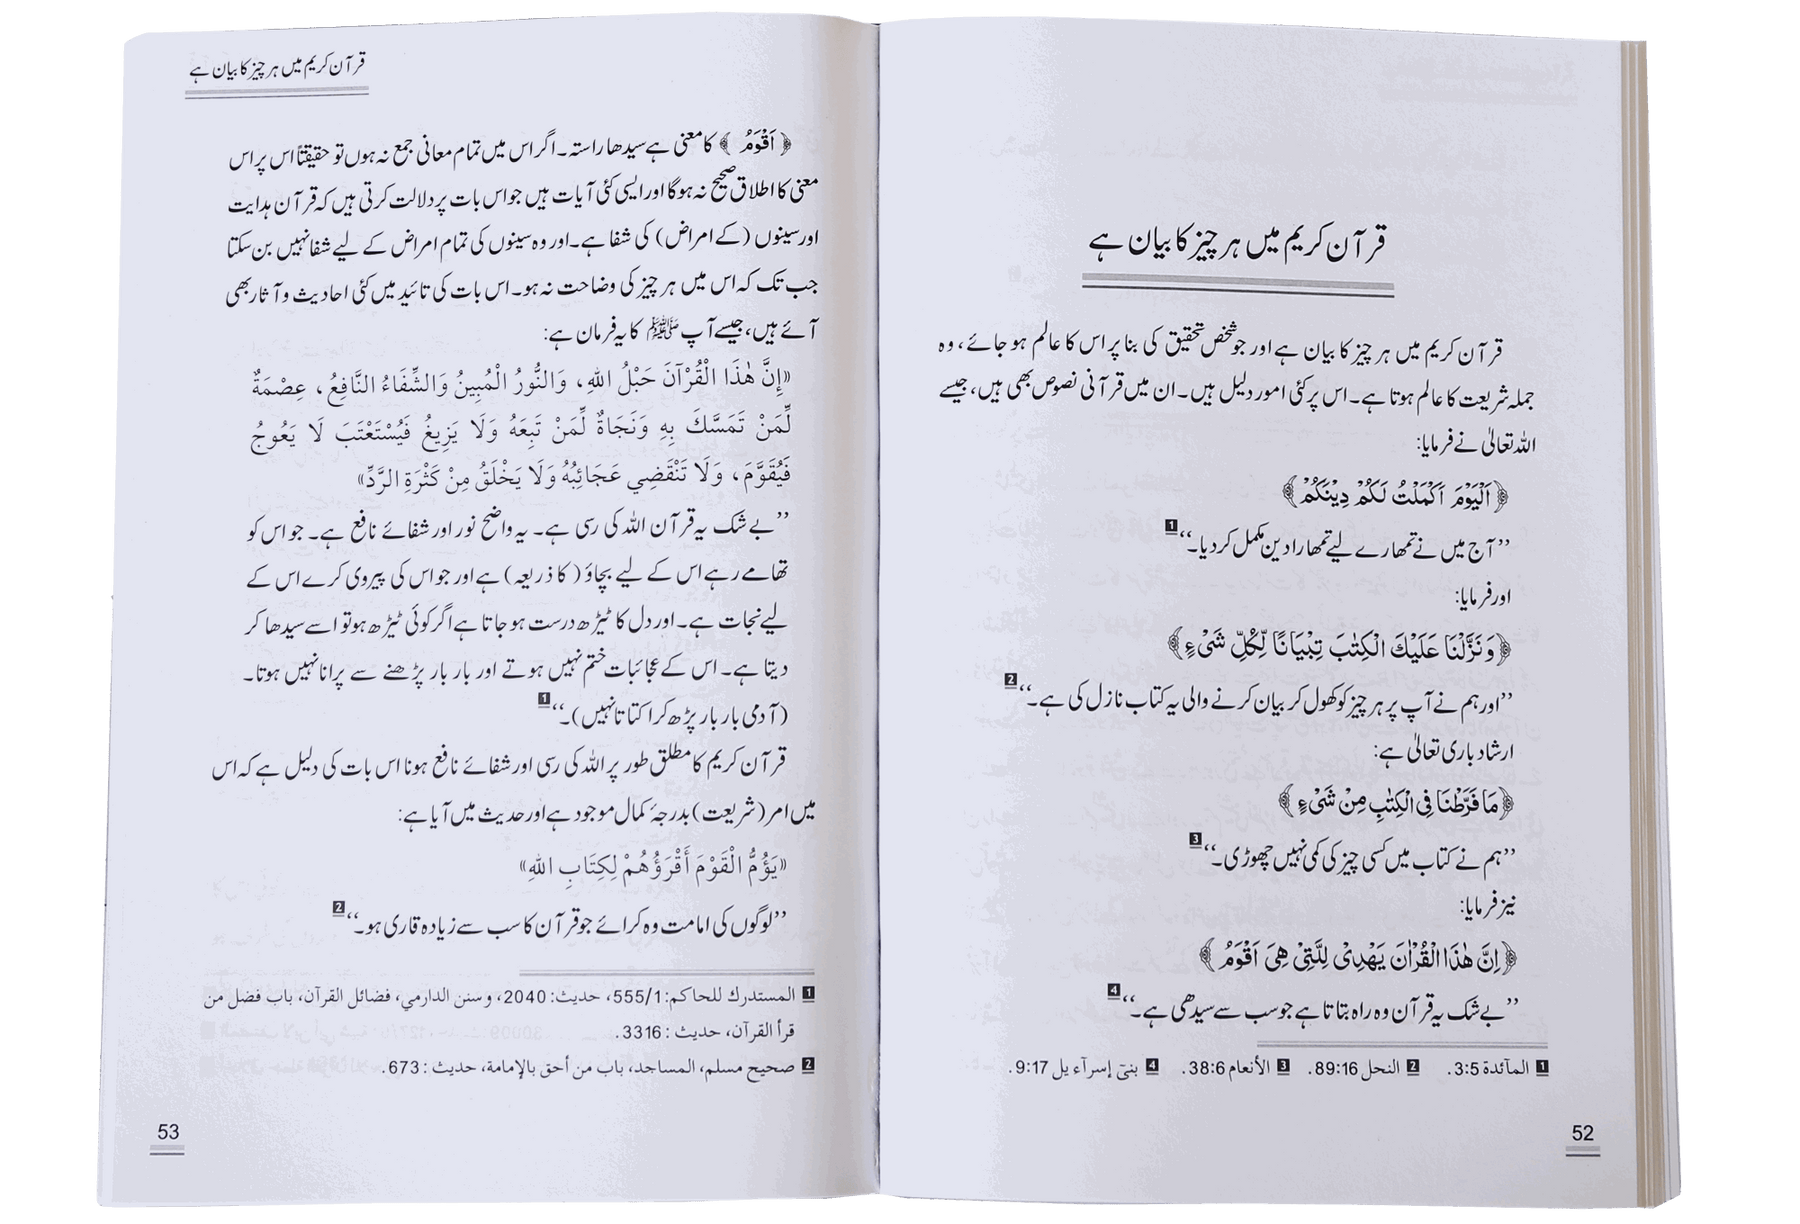 قرآن کریم میں ہر چیز کا بیان ہے
قرآن کریم میں ہر چیز کا بیان ہے اور جو شخص تحقیق کی بنا پر اس کا عالم ہو جائے، وہ
جملہ شریعت کا عالم ہوتا ہے۔ اس پر کئی امور دلیل ہیں۔ ان میں قرآنی نصوص بھی ہیں، جیسے
اللہ تعالیٰ نے فرمایا:
﴿اَلْیَوْمَ اَکْمَلْتُ لَکُمْ دِیْنَکُمْ﴾
’’آج میں نے تمھارے لیے تمھارا دین مکمل کر دیا۔‘‘ 1
اور فرمایا:
﴿وَنَزَّلْنَا عَلَیْكَ الْکِتٰبَ تِبْیَانًا لِّکُلِّ شَیْءٍ﴾
’’اور ہم نے آپ پر ہر چیز کو کھول کر بیان کرنے والی یہ کتاب نازل کی ہے۔‘‘ 2
ارشاد باری تعالیٰ ہے:
﴿مَا فَرَّطْنَا فِی الْکِتٰبِ مِنْ شَیْءٍ﴾
’’ہم نے کتاب میں کسی چیز کی کمی نہیں چھوڑی۔‘‘ 3
نیز فرمایا:
﴿اِنَّ هٰذَا الْقُرْاٰنَ یَهْدِیْ لِلَّتِیْ هِیَ اَقْوَمُ﴾
’’بے شک یہ قرآن وہ راہ بتاتا ہے جو سب سے سیدھی ہے۔‘‘ 4
1 المآئدة 3:5. 2 النحل 89:16. 3 الأنعام 38:6. 4 بنیٓ إسرآءیل 9:17.
52
قرآن کریم میں ہر چیز کا بیان ہے
﴿اَقْوَمُ﴾ کا معنی ہے سیدھا راستہ۔ اگر اس میں تمام معانی جمع نہ ہوں تو حقیقتاً اس پر اس
معنی کا اطلاق صحیح نہ ہوگا اور ایسی کئی آیات ہیں جو اس بات پر دلالت کرتی ہیں کہ قرآن ہدایت
اور سینوں (کے امراض) کی شفا ہے۔ اور وہ سینوں کی تمام امراض کے لیے شفا نہیں بن سکتا
جب تک کہ اس میں ہر چیز کی وضاحت نہ ہو۔ اس بات کی تائید میں کئی احادیث و آثار بھی
آئے ہیں، جیسے آپ ﷺ کا یہ فرمان ہے:
«إِنَّ هٰذَا الْقُرْآنَ حَبْلُ اللهِ، وَالنُّورُ الْمُبِينُ وَالشِّفَاءُ النَّافِعُ، عِصْمَةٌ
لِّمَنْ تَمَسَّكَ بِهِ وَنَجَاةٌ لِّمَنْ تَبِعَهُ وَلَا يَزِيغُ فَيُسْتَعْتَبَ لَا يَعُوجُ
فَيُقَوَّمَ، وَلَا تَنْقَضِي عَجَائِبُهُ وَلَا يَخْلَقُ مِنْ كَثْرَةِ الرَّدِّ»
’’بے شک یہ قرآن اللہ کی رسی ہے۔ یہ واضح نور اور شفائے نافع ہے۔ جو اس کو
تھامے رہے اس کے لیے بچاؤ (کا ذریعہ) ہے اور جو اس کی پیروی کرے اس کے
لیے نجات ہے۔ اور دل کا ٹیڑھ درست ہو جاتا ہے اگر کوئی ٹیڑھ ہو تو اسے سیدھا کر
دیتا ہے۔ اس کے عجائبات ختم نہیں ہوتے اور بار بار پڑھنے سے پرانا نہیں ہوتا۔
(آدمی بار بار پڑھ کر اکتاتا نہیں)۔‘‘ 1
قرآن کریم کا مطلق طور پر اللہ کی رسی اور شفائے نافع ہونا اس بات کی دلیل ہے کہ اس
میں امر (شریعت) بدرجۂ کمال موجود ہے اور حدیث میں آیا ہے:
«يَؤُمُّ الْقَوْمَ أَقْرَؤُهُمْ لِكِتَابِ اللهِ»
’’لوگوں کی امامت وہ کرائے جو قرآن کا سب سے زیادہ قاری ہو۔‘‘ 2
1 المستدرك للحاكم: 555/1، حديث: 2040، وسنن الدارمي، فضائل القرآن، باب فضل من
قرأ القرآن، حديث: 3316.
2 صحيح مسلم، المساجد، باب من أحق بالإمامة، حديث: 673.
53